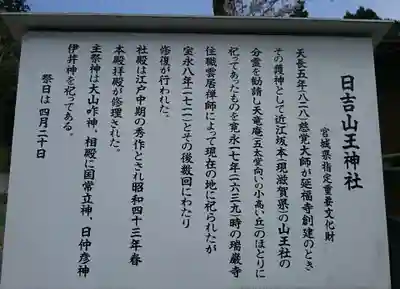 日吉山王神社
宮城県指定重要文化財
天長五年(八二八)慈覚大師が延福寺創建のとき
その護神として近江坂本(現滋賀県)の山王社の
分霊を勧請し天竜庵(五大堂向いの小高い丘)のほとりに
祀ってあったものを寛永一七年(一六三九)時の瑞巌寺
住職雲居禅師によって現在の地に祀られたが
宝永八年(一七一一)とその後数回にわたり
修復が行われた。
社殿は江戸中期の秀作とされ昭和四十三年春
本殿拝殿が修理された。
主祭神は大山咋神、相殿に国常立神、日仲彦神
伊弉神を祀ってある。
祭日は四月二十日